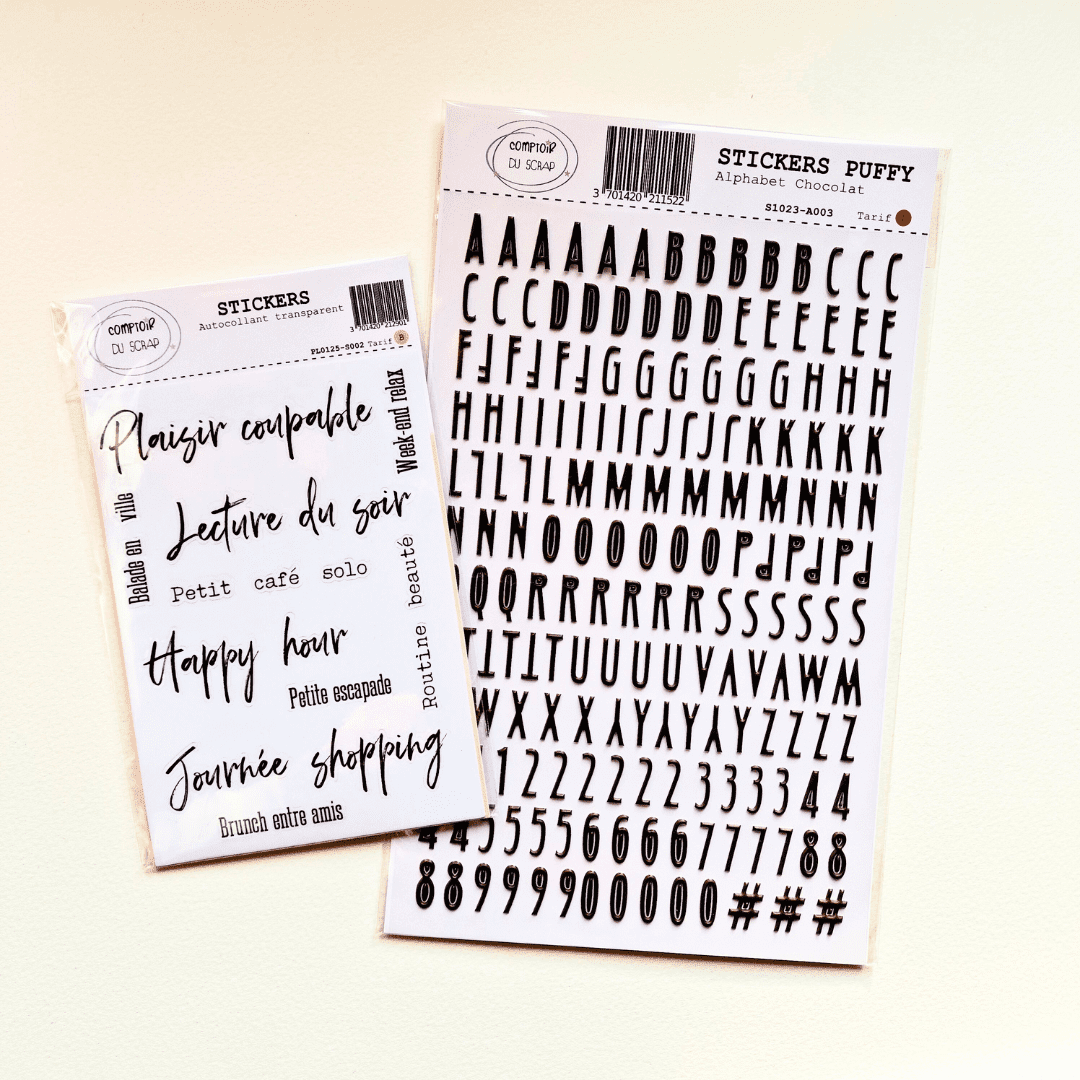 COMPTOIR
DU SCRAP
STICKERS
Autocollant transparent
3 701420 212901
PL0125-S002 Tarif B
Plaisir coupable
Week-end relax
Lecture du soir
Balade en ville
Petit café solo
Routine beauté
Happy hour
Petite escapade
Journée shopping
Brunch entre amis
COMPTOIR
DU SCRAP
3 701420 211522
STICKERS PUFFY
Alphabet Chocolat
S1023-A003 Tarif
A A A A A A B B B B B C C C
C C C D D D D D E E E E E
F F F F F G G G G G G H H H
H H I I I I I J J J J K K K K K
L L L L M M M M M M N N N
N N N O O O O O O P P P P P
Q Q R R R R R R S S S S S
T T T T U U U U V V V W W
W X X X Y Y Y Y Y Z Z Z Z
1 2 2 2 2 2 3 3 3 3 4 4
4 4 5 5 5 5 6 6 6 6 7 7 7 7 8 8
8 8 9 9 9 9 0 0 0 0 0 # # #